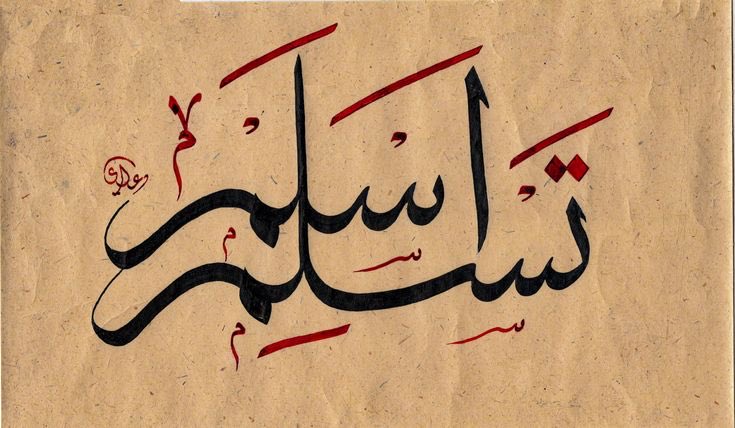 اسلم
تسلم